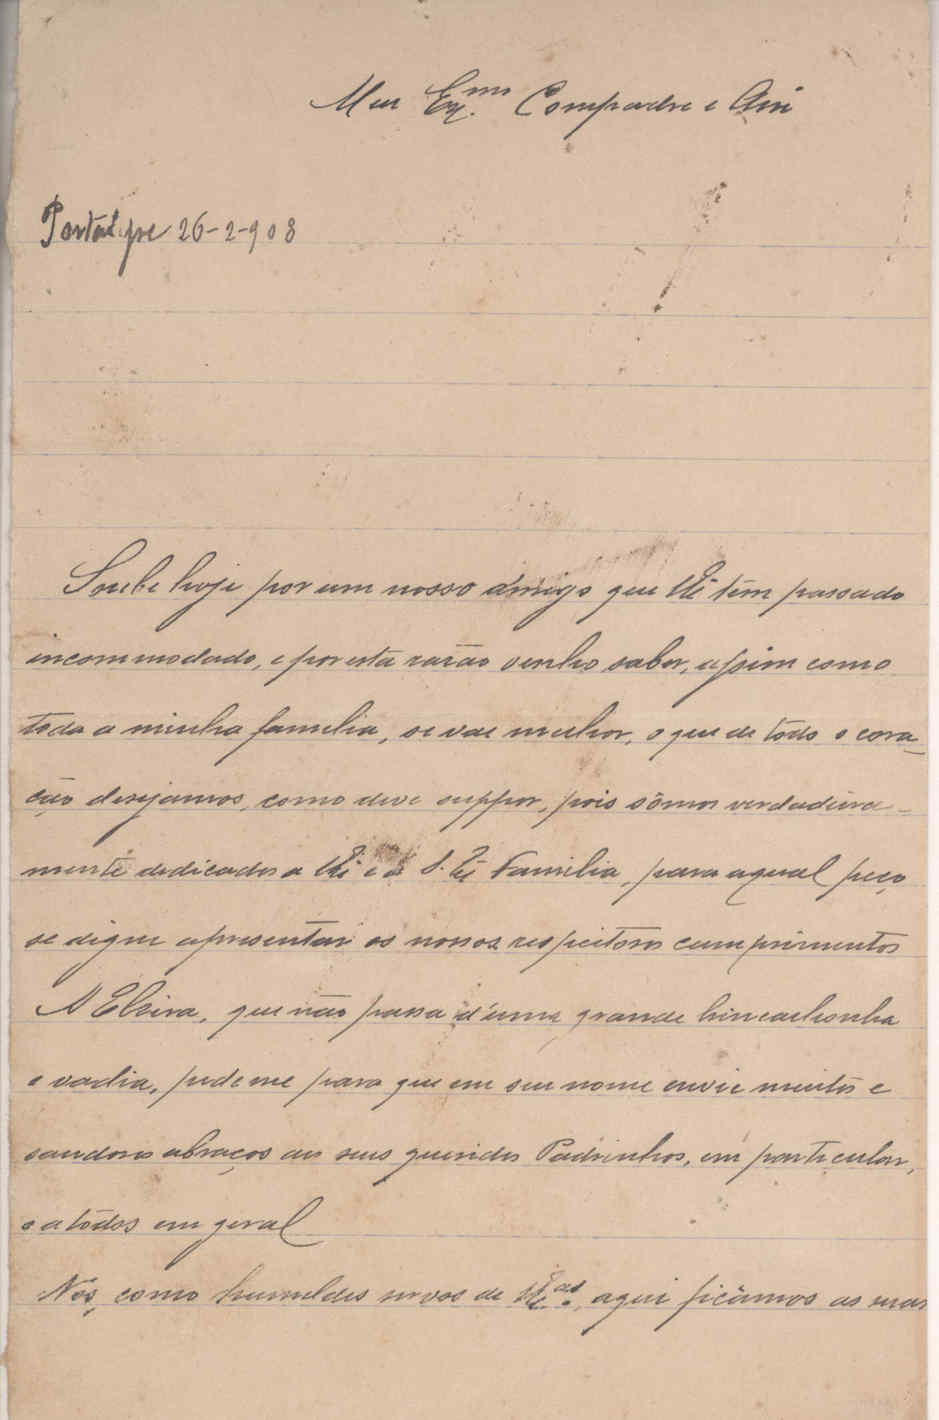 Meu Ex.mo Compadre e Am
Portalegre 26-2-908
Soube hoje por um nosso amigo que V.E. tem passado
incommodado, e por esta razão venho saber, assim como
toda a minha familia, se vae melhor, o que de todo o cora-
ção desejamos, como deve suppor, pois sômos verdadeira-
mente dedicados a V.E. e á S. E. Familia, para a qual peço
se digne apresentar os nossos respeitosos cumprimentos
A Elvira, que não passa d'uma grande brincalhonha
e vadia, pede-me para que em seu nome envie muitos e
saudosos abraços aos seus queridos Padrinhos, em particular,
e a todos em geral
Nós, como humildes servos de V.E.as, aqui ficâmos as suas